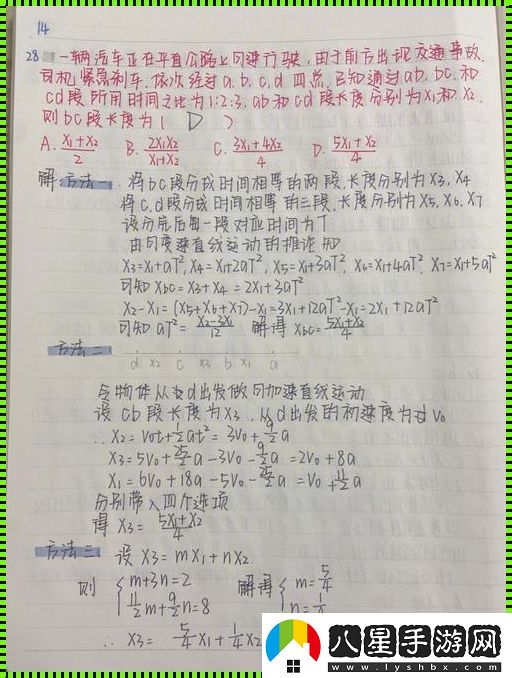 14
28 一辆汽车正在平直公路上匀速行驶,由于前方出现交通事故,
司机紧急刹车,依次经过a、b、c、d四点,已知通过ab、bc、和
cd段所用时间之比为1:2:3,ab和cd段长度分别为x₁和x₂,
则bc段长度为( D )
A. (x₁+x₂)/2 B. 2x₁x₂/(x₁+x₂) C. (3x₁+4x₂)/4 D. (5x₁+x₂)/4
解:方法一、将bc段分成时间相等的两段,长度分别为x3, x4
将c,d段分成时间相等的三段,长度分别为X5, X6, X7
设分完后每一段对应时间为T
由匀变速直线运动的推论知
X3=X1+aT², X4=X1+2aT², X5=X1+3aT², X6=X1+4aT², X7=X1+5aT²
可知 Xbc=X3+X4=2X1+3aT²
X2-X1=(X5+X6+X7)-X1=3X1+12aT²-X1=2X1+12aT²
可知 aT²=(X2-3X1)/12 解得 Xbc=(5X1+X2)/4
方法二、
d x2 c x3 b x1 a
令物体从d出发做匀加速直线运动
设cb段长度为X3,从d出发的初速度为v0
∴X2=V0t+½at²=3V0+9/2a
X3=5V0+25/2a-3V0-9/2a=2V0+8a
X1=6V0+18a-5V0-25/2a=V0+11/2a
分别带入四个选项
得X3=(5X1+X2)/4
方法三、设X3=mX1+nX2
则 {m+3n=2 解得 {m=5/4
{11/2m+9/2n=8 {n=
∴X3=5/4X1+1/4X2
八星手游网
www.lyshbx.com